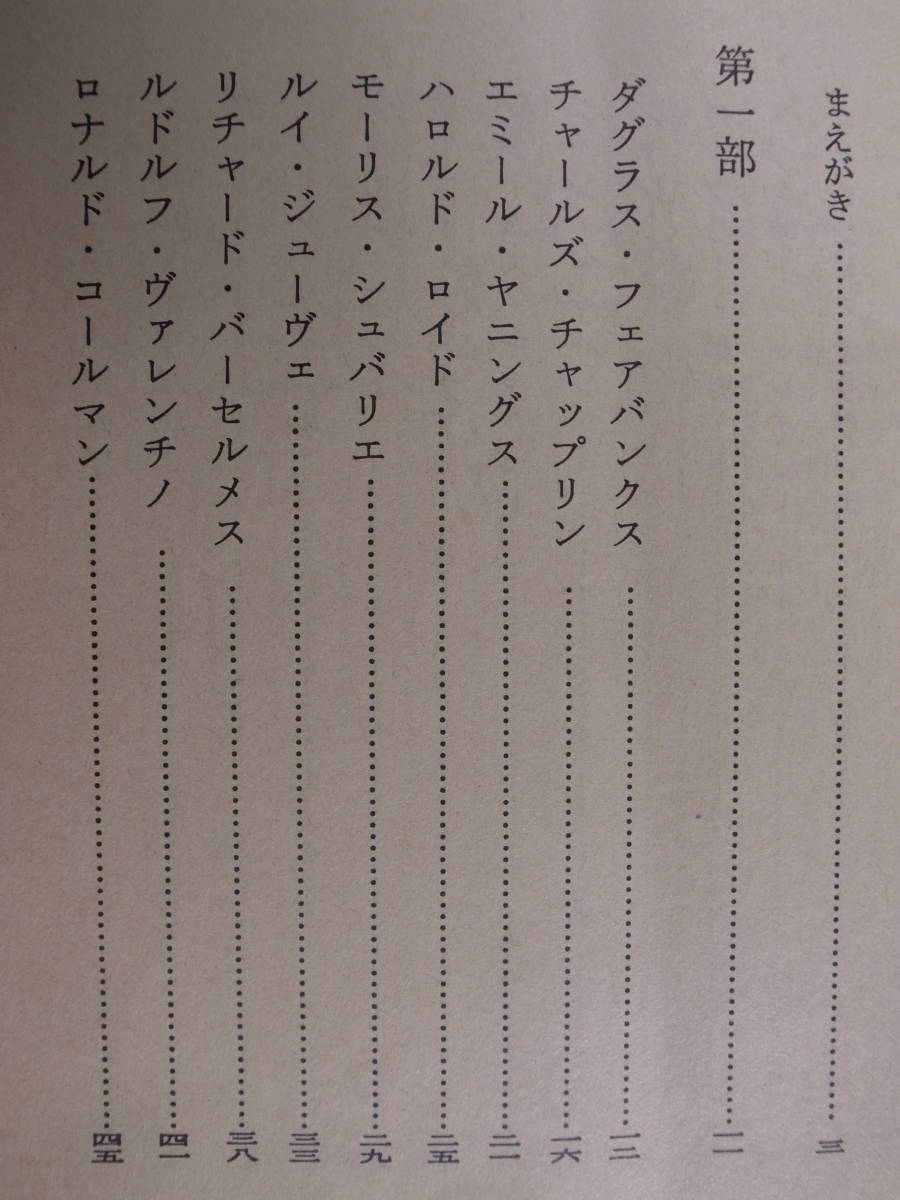 まえがき……………三
第一部……………一一
ダグラス・フェアバンクス……………一二
チャールズ・チャップリン……………一六
エミール・ヤニングス……………二一
ハロルド・ロイド……………二五
モーリス・シュバリエ……………二九
ルイ・ジューヴェ……………三三
リチャード・バーセルメス……………三八
ルドルフ・ヴァレンチノ……………四一
ロナルド・コールマン……………四五